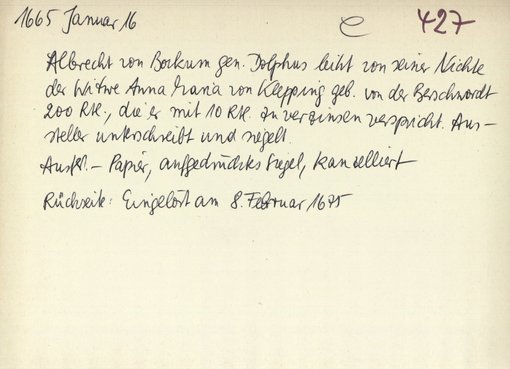 1665 Januar 16 e 427
Albrecht von Bockum gen. Dolphus leiht von seiner Nichte
der Witwe Anna Maria von Klepping geb. von der Berswordt
200 Rtl., die er mit 10 Rtl. zu verzinsen verspricht. Aus-
steller unterschreibt und siegelt.
Ausf. - Papier, aufgedrücktes Siegel, kanzelliert
Rückseite: Eingelöst am 8. Februar 1675